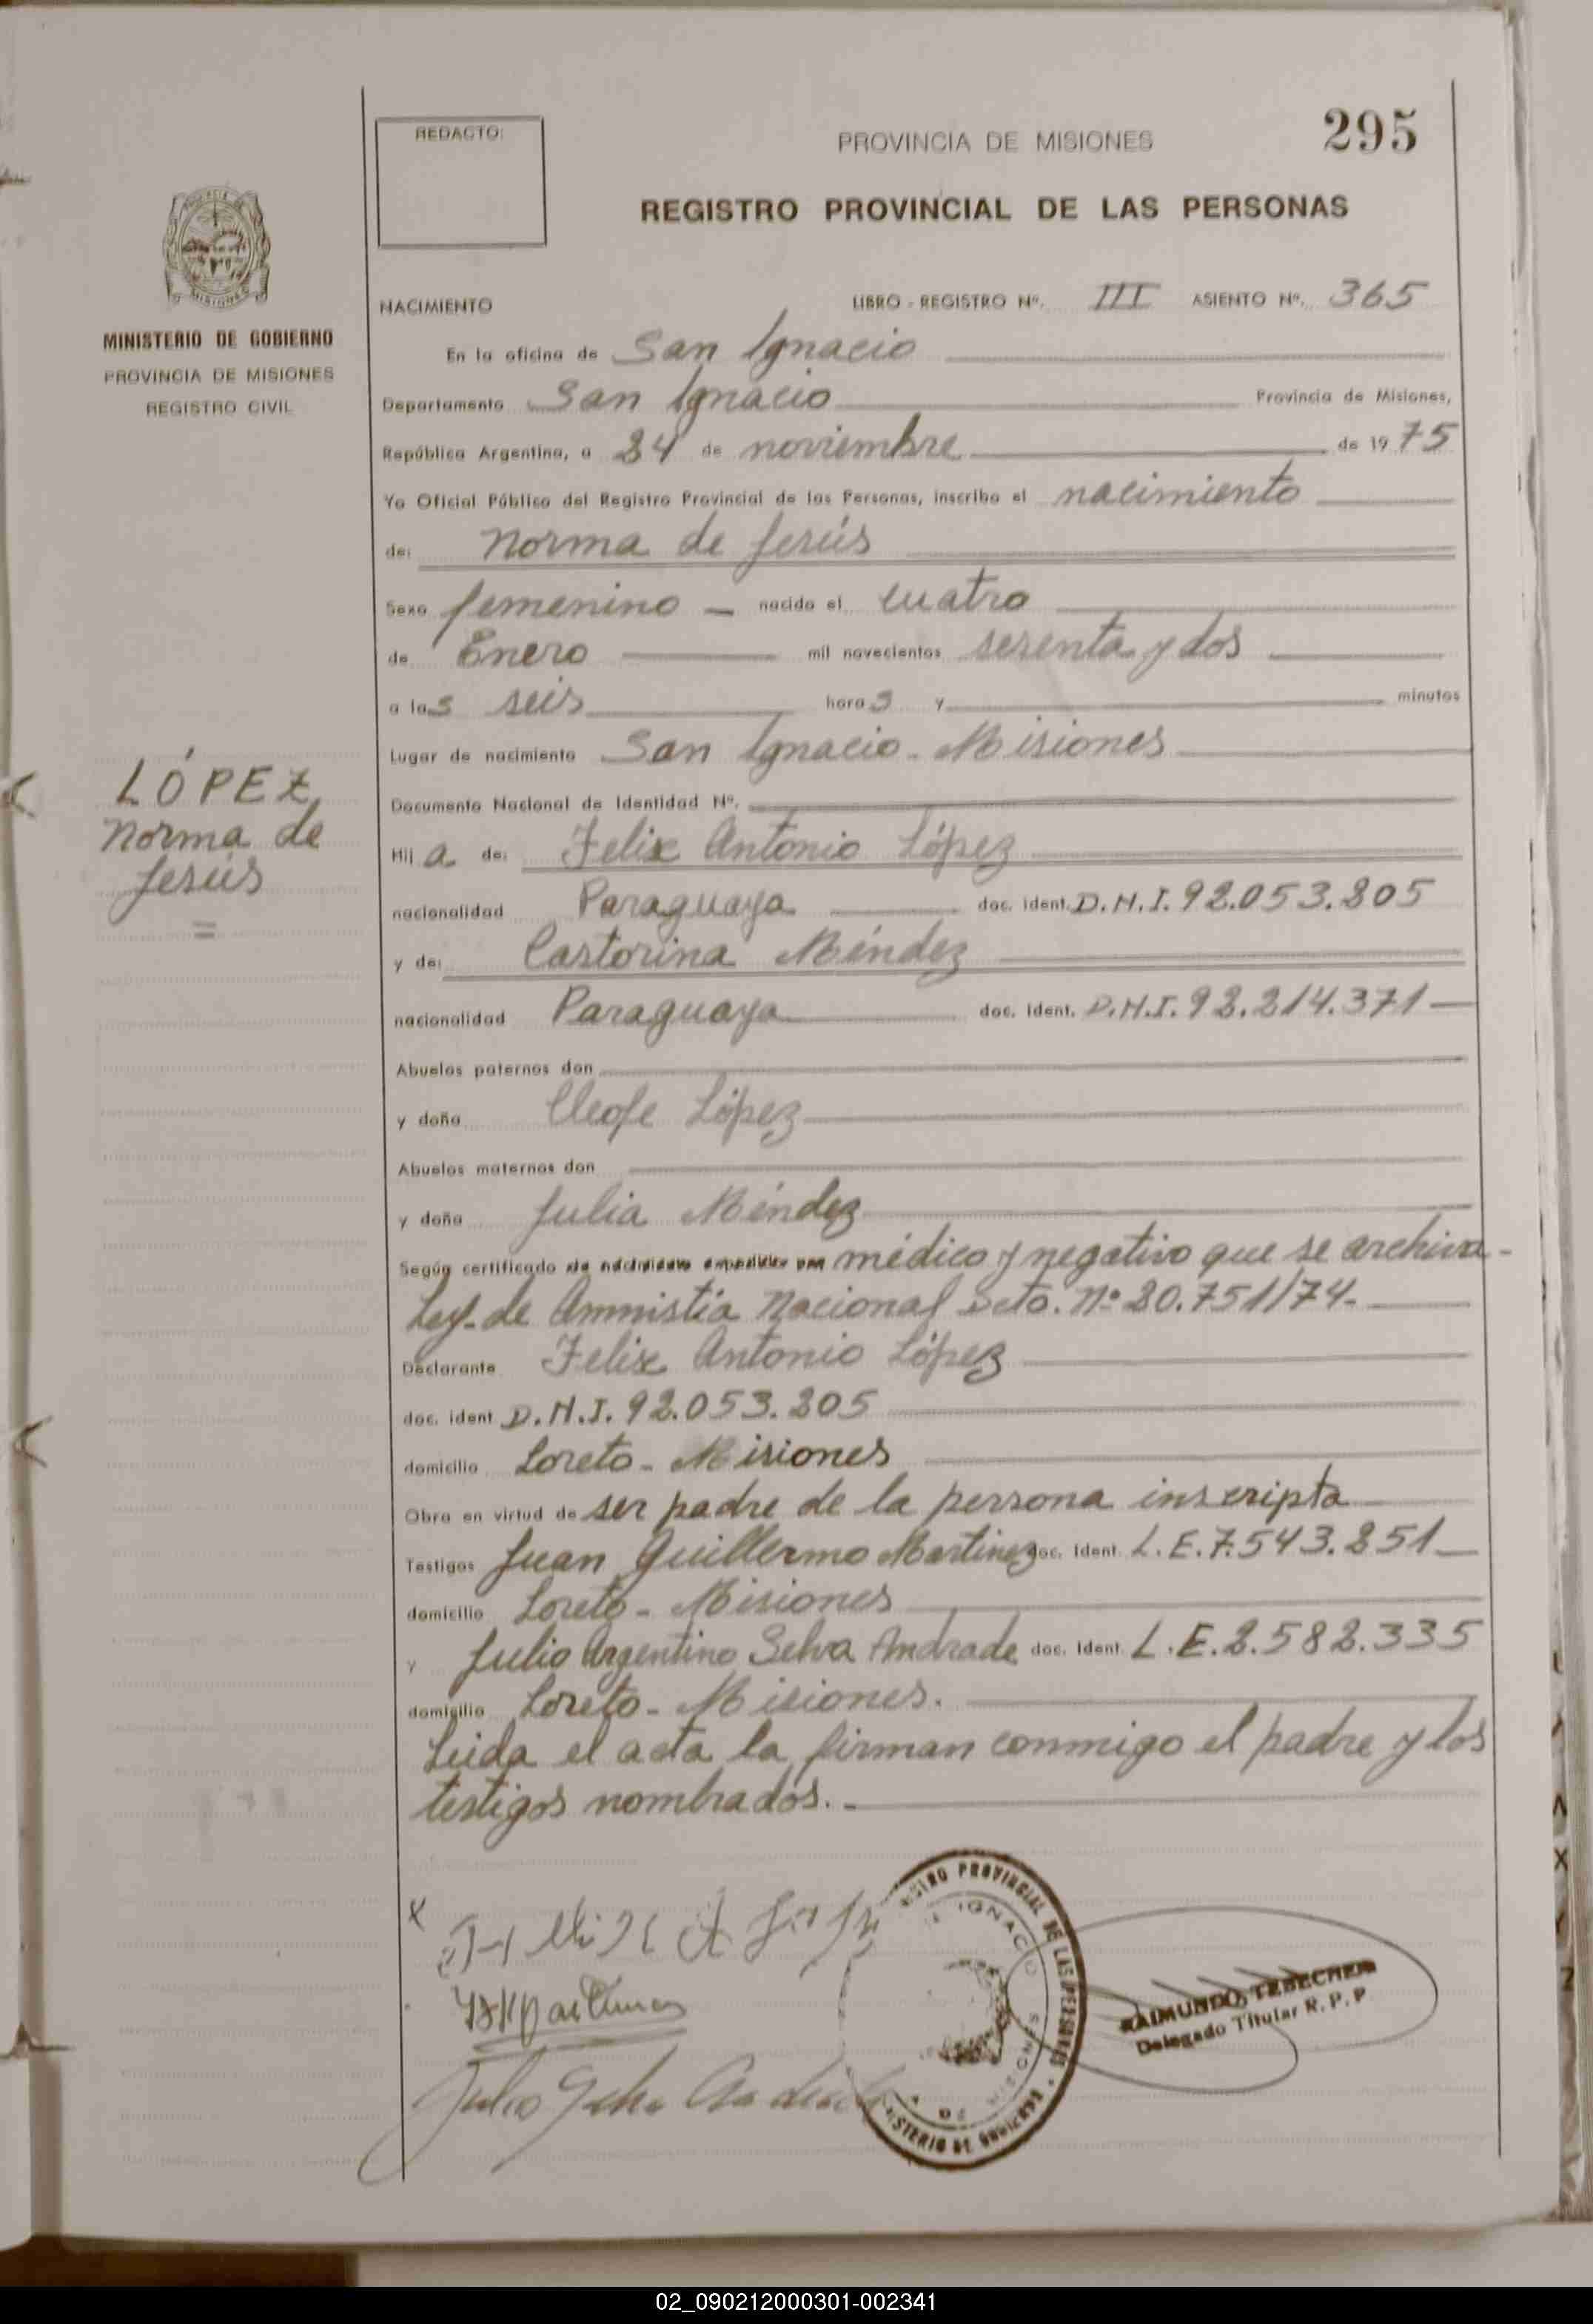 REDACTO:
PROVINCIA DE MISIONES
295
REGISTRO PROVINCIAL DE LAS PERSONAS
MINISTERIO DE GOBIERNO
PROVINCIA DE MISIONES
REGISTRO CIVIL
NACIMIENTO LIBRO - REGISTRO Nº. III ASIENTO Nº. 365
En la oficina de San Ignacio
Departamento San Ignacio Provincia de Misiones,
República Argentina, a 24 de noviembre de 1975
Yo Oficial Público del Registro Provincial de las Personas, inscribo el nacimiento
de: Norma de Jesús
Sexo femenino nacido el cuatro
de Enero mil novecientos sesenta y dos
a las seis horas y minutos
Lugar de nacimiento San Ignacio - Misiones
Documento Nacional de Identidad Nº.
LÓPEZ,
Norma de
Jesús
=
Hija de: Felix Antonio López
nacionalidad Paraguaya doc. ident. D.N.I. 92.053.205
y de: Castorina Méndez
nacionalidad Paraguaya doc. ident. D.N.I. 92.214.371
Abuelos paternos don
y doña Cleofe López
Abuelos maternos don
y doña Julia Méndez
Según certificado de nacimiento expedido por médico y negativo que se archiva-
Ley de Amnistía Nacional Dcto. Nº 20.751/74-
Declarante Felix Antonio López
doc. ident D.N.I. 92.053.205
domicilio Loreto - Misiones
Obra en virtud de ser padre de la persona inscripta
Testigos Juan Guillermo Martinez doc. ident. L.E. 7.543.251
domicilio Loreto - Misiones
y Julio Argentino Selva Andrade doc. ident. L.E. 2.582.335
domicilio Loreto - Misiones.
Leida el acta la firman conmigo el padre y los
testigos nombrados.-
X
Julio Selva Andrade
REGISTRO PROVINCIAL DE LAS PERSONAS
IGNACIO
DE MISIONES
MINISTERIO DE GOBIERNO
RAIMUNDO TESECHER
Delegado Titular R. P. P
02_090212000301-002341